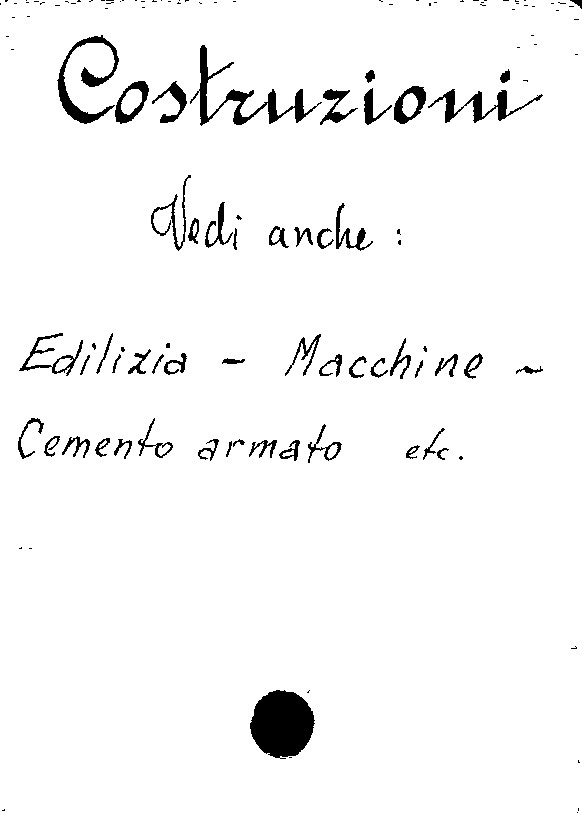 Costruzioni
Vedi anche :
Edilizia - Macchine -
Cemento armato etc.